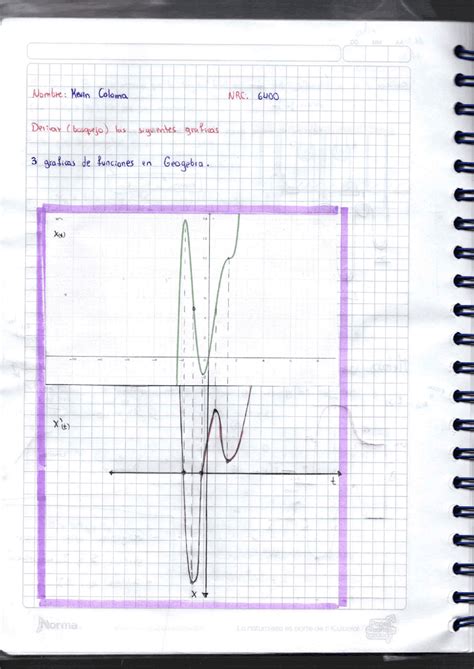 Nombre: Kevin Coloma NRC. 6400
Derivar (bosquejo) las siguientes graficas
3 graficas de funciones en Geogebra.
X(t)
X'(t)
t
X
Norma